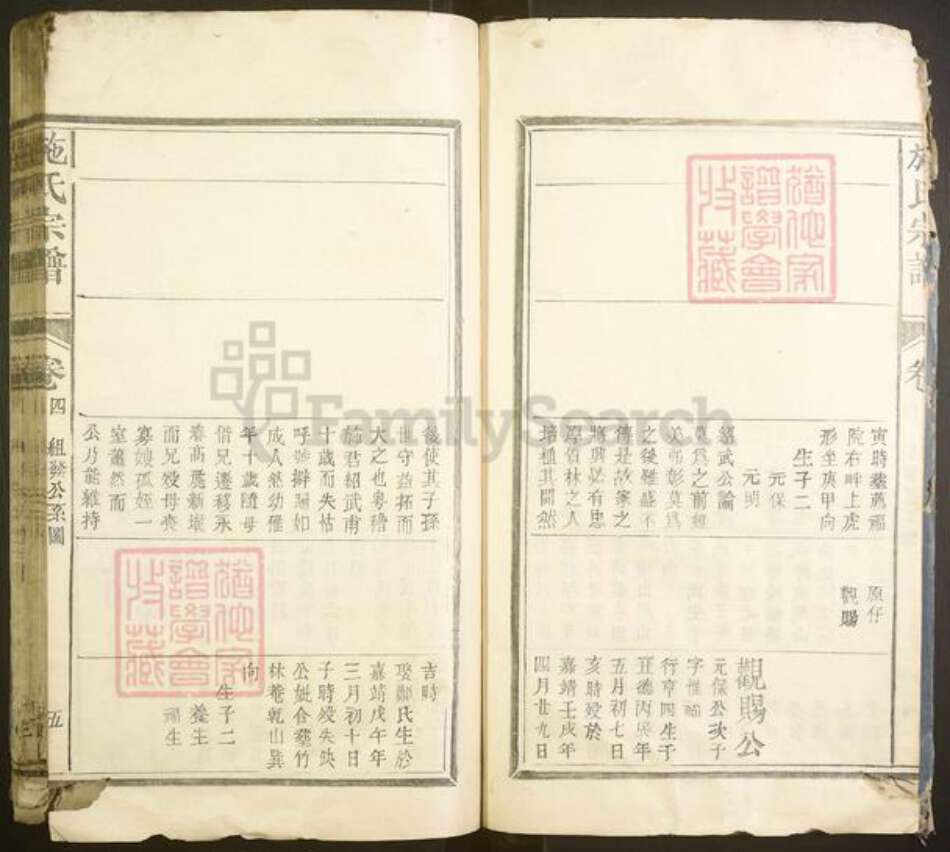 寅時葬薦福
院右畔上虎
形坐庚甲向
生子二
元保
元明
紹武公論
莫爲之前雖
美弗彰莫爲
之後雖盛不
傳是故筆之
將興必有思
深伯林之人
培植其開然
原仔
觀賜
觀賜公
元保公次子
字惟
行亨四生于
正德丙寅年
五月初七日
亥時殁於
嘉靖壬戌年
四月廿九日
後使其子孫
世守益拓而
大之也粵稽
施君紹武甫
十歲而失怙
呼號擗踊如
成人然幼僅
年十歲隨母
偕兄遷移永
春高鹿新墟
而兄歿母喪
寡嫂孤姪一
室蕭然而
公乃能維持
吉時
娶鄭氏生於
嘉靖戊午年
三月初十日
子時殁失缺
公妣合葬竹
林巷乾山巽
向
生子二
養生
福生
施氏宗譜
卷四
組發公系圖
五
施氏宗譜
卷
猶他家
譜學會
收藏
猶他家
譜學會
收藏
FamilySearch